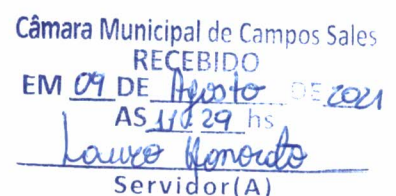 Câmara Municipal de Campos Sales
RECEBIDO
EM 09 DE Agosto DE 2021
AS 11:29 hs
Lauro Honorato
Servidor(A)